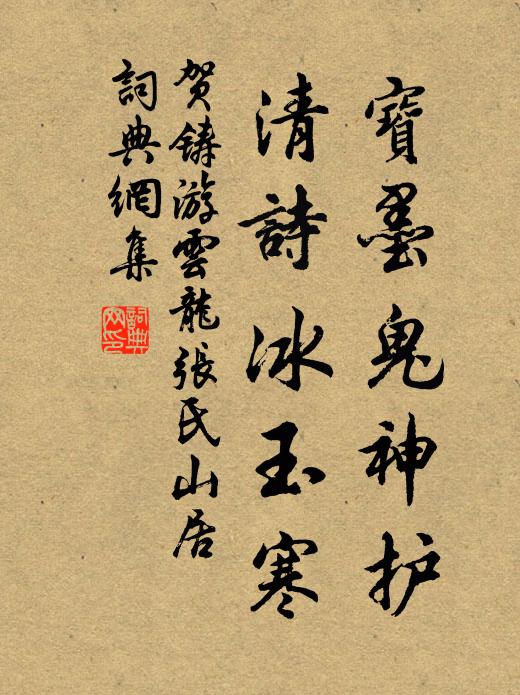 寶墨鬼神护
清詩冰玉寒
贺鑄游雲龍張氏山居
詞典網集
詞典网印